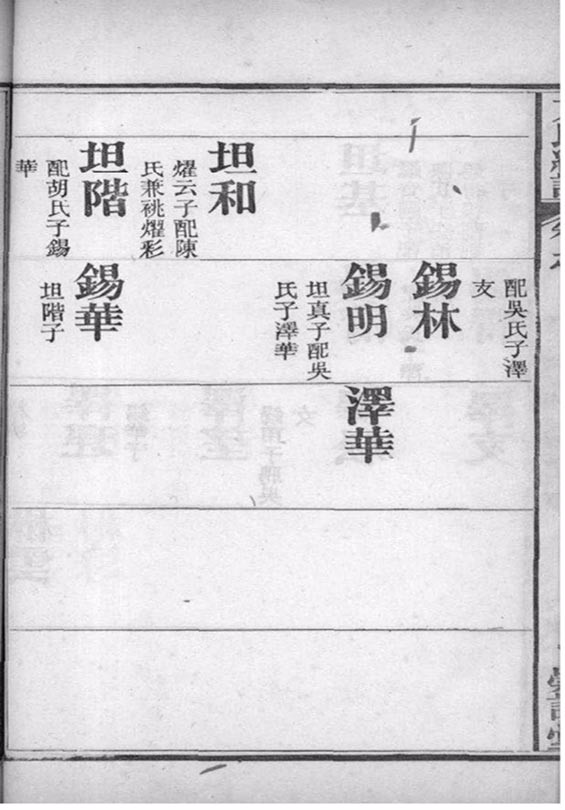 坦和
燿云子配陳
氏兼祧燿彩
坦階
配胡氏子錫
華
配吳氏子澤
攴
錫林
錫明
坦真子配吳
氏子澤華
錫華
坦階子
澤華